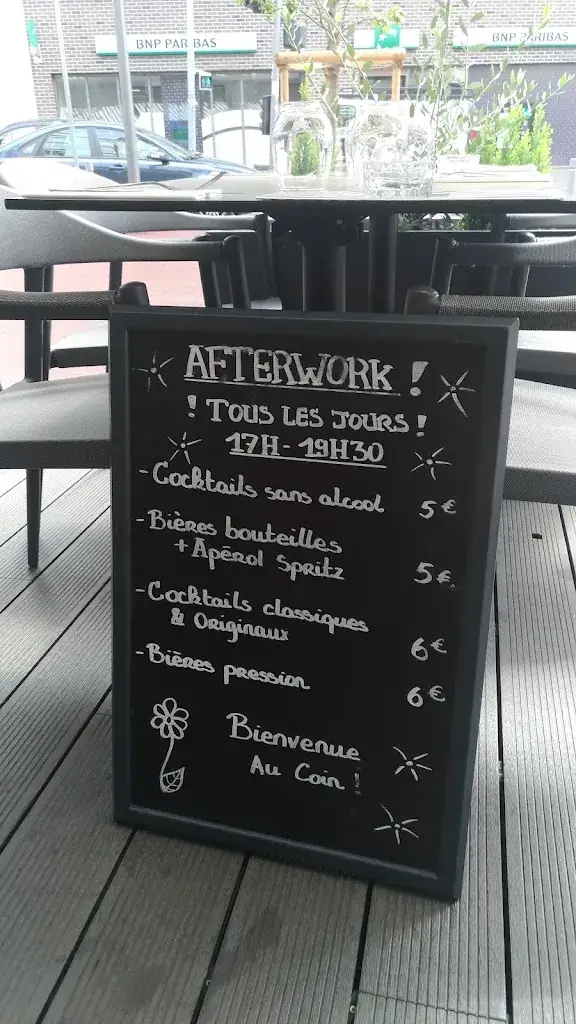 BNP PARIBAS
BNP PARIBAS
AFTERWORK !
! TOUS LES JOURS !
17H - 19H30
- Cocktails sans alcool 5€
- Bières bouteilles
+ Apérol Spritz 5€
- Cocktails classiques
& Originaux 6€
- Bières pression 6€
Bienvenue
Au Coin !